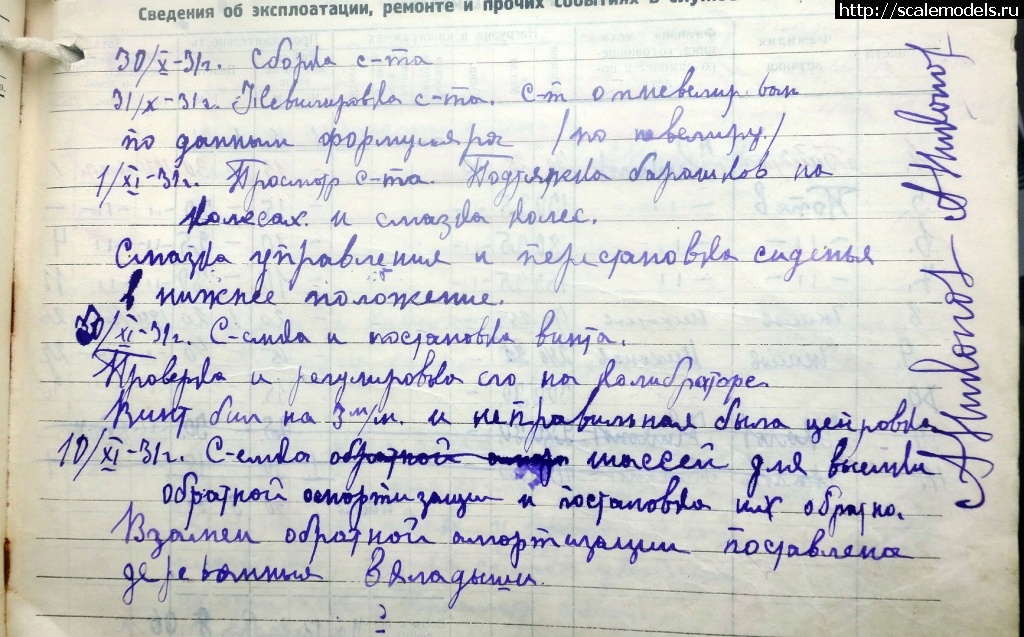 http://scalemodels.ru
Сведения об эксплоатации, ремонте и прочих событиях в
30/X-31г. Сборка с-та
31/X-31г. Нивелировка с-та. С-т отнивелирован
по данным формуляра /по нивелиру./
1/XI-31г. Просмотр с-та. Подтяжка барашков на
колесах и смазка колес.
Смазка управления и перестановка сиденья
в нижнее положение.
/XI-31г. С-емка и постановка винта.
Проверка и регулировка его на калибраторе.
Винт бил на 3 м/м. и неправильная была
10/XI-31г. С-емка обратной шассей для
обратной амортизации и постановка их обратно.
Взамен обратной амортизации поставлена
деревянные вкладыши.